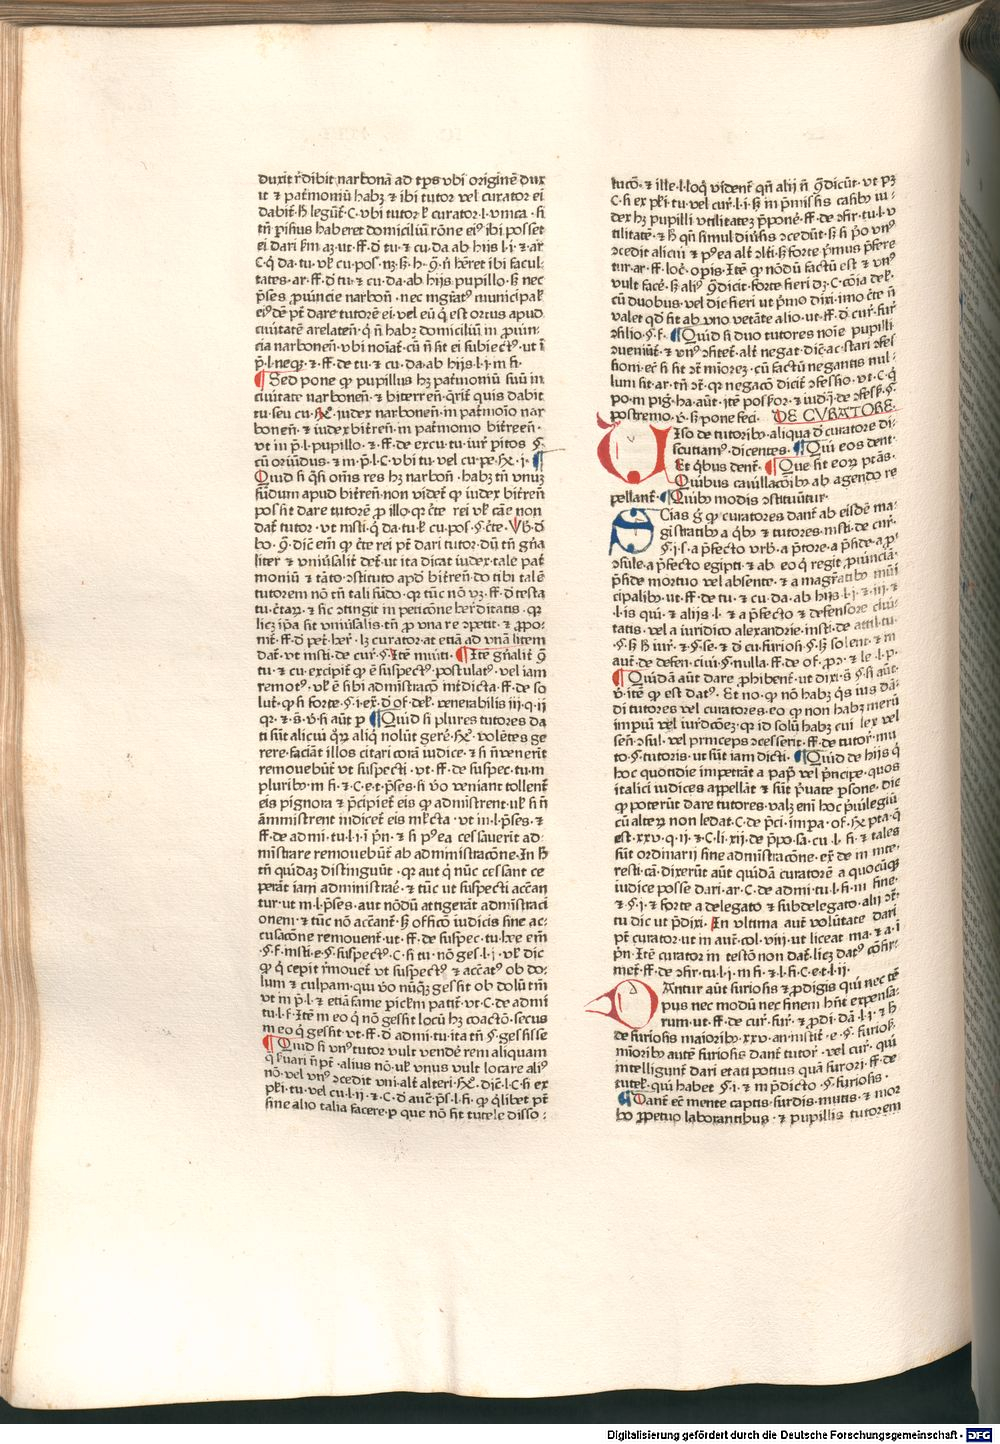 duxit r̄dibit narbonā ad tꝑs vbi originē dux
it ⁊ pat̄moniū habꝫ ⁊ ibi tutor vel curator ei
dabit̄· ħ legūt̄·C·vbi tutor ł curator·l·vnica· si
tn̄ prius haberet domiciliū rōne eiꝰ ibi posset
ei dari
C· q̄ da·tu·vł cu·pos·
tates·ar·ff·d̄ tu·⁊ cu·da·ab hijs pupillo·ꝫ nec
p̄ses ꝓuīcie narbon̄· nec mgr̄atꝰ municipał
eiꝰdē pt̄ dare tutorē ei·vel eū q̄ est ortus apud
ciuitatē arelaten̄·q̄ n̄ habꝫ domiciliū m ꝓuin
cia narbonen̄·vbi noīat̄·cū n̄ sit ei subiectꝰ·ut ī
p̄·l·neqꝫ·⁊·ff·de tu·⁊ cu·da·ab hijs·l·i·m fi·
Sed pone ꝙ pupillus hꝫ pat̄moniū suū in
ciuitate narbonen̄·⁊ biterren̄·q̄rit̄ quis dabit
tu·seu cu· iudex narbonen̄·m pat̄moīo nar
bonen̄·⁊ iudex bitren̄·m pat̄monio bitreen̄·
vt in p̄·l·pupillo·⁊·ff·de excu·tu·iur̄ pitos §·
cū oriūdus·⁊ m·p̄·l·C·vbi tu·vel cu·pe·
Quid si q̄si om̄s res hꝫ narbon̄· habꝫ tn̄ vnuꝫ
fūdum apud bitren̄·non videt̄ ꝙ iudex bitren̄
possit dare tutorē ꝓ illo·qꝛ c̄te rei vł cāe non
dat̄ tutor·vt insti·q̄ da·tu·ł cu·pos·§·c̄te·
bo·
liter ⁊ vniūsalit̄ det̄·ut ita dicat iudex·tale pat̄
moniū ⁊ tāto ɔstituto apd̄ bitren̄·do tibi talē
tutorem nō tn̄ tali fūdo·qꝛ tūc nō vꝫ·ff·d̄ testa
tu·c̄tarꝫ·⁊ sic ɔtingit in peticōne her̄ditatis·qꝛ
licꝫ ip̄a sit vniūsalis·tn̄ ꝓ vna re ɔpetit̄·⁊ ꝓpo-
nit̄·ff·d̄ pet̄·her̄·lꝫ curator·at etiā ad vnā litem
dat̄·vt insti·de cur̄·§·Itē muti· Itē gn̄alit̄
tu·⁊ cu·excipit̄ ꝙ ē suspectꝰ postulatꝰ·vel iam
remotꝰ·vł ē sibi admīstracō int̄dicta·ff·de so
lut̄·ꝙ si forte·§·i·ex̄·d̄ of·deł·venerabilis iij·q·ij
Quid si plures tutores da
ti sūt alicui
rere·faciāt illos citari corā iudice·⁊ si n̄ venerīt
removebūt̄ vt suspecti·vt·ff·de suspec·tu·m
pluribꝰ·m fi·⁊·C·e·t·p̄ses·si v̄o veniant tollent̄
eis pignora ⁊ p̄cipiet̄ eis ꝙ admīstrent·uł si n̄
āmmistrent indicet̄ eis int̄dicta·vt in·l·p̄ses·⁊
ff·de admi·tu·l·i·ī pn̄·⁊ si pꝰea cessauerit ad-
mīstrare remouebūt̄ ab administracōne·In ħ
tn̄ quidaꝫ distinguūt·qꝛ aut q̄ nūc cessant ce
perāt iam administrae·⁊ tūc ut suspecti accēan
tur·ut m·l·p̄ses·aut nōdū attigerāt admīstraci
onem·⁊ tūc nō accēant̄·ꝫ officō iudicis sine ac-
cusacōne remouent̄·ut·ff·de suspec·tu·hec em̄
§·f·insti·e·§·suspectꝰ·C·si tu·nō ges·l·i·vł dic
ꝙ q̄ cepit r̄mouet̄ vt suspectꝰ ⁊ accat̄ꝰ ob do-
lum ⁊ culpam·qui v̄o nūqꝫ gessit ob dolū tm̄
vt m p̄·l·⁊ etiā fame picłm patit̄·vt·C·de admi
tu·l·f·Itē m eo q̄ nō gessit locū hꝫ coactō·secus
m eo q̄ gessit·vt·ff·d̄ admi·tu·ita tn̄ §·gessisse
Quid si vnꝰ tutor vult vendē rem aliquam
q̄ suari n̄ pt̄·alius nō·uł vnus vult locare aliꝰ
nō·vel vnꝰ ɔcedit vni·alt̄ alteri·
pł̄i·tu·vel cu·l·ij·⁊·C·d̄ auc̄·p̄s·l·fi·ꝙ q̄libet pt̄
sine alio talia facere·p̄ que nō sit tutele disso-
lucō·⁊ ille·l·loq̄ vident̄ qn̄ alij n̄ q̄dicūt·vt pꝫ
C·si ex pł̄i·tu·vel cur̄·l·i·ꝫ in p̄missis casibꝰ iu-
dex hꝫ pupilli vtilitateꝫ p̄ponē·ff·de ɔfir·tu·l·v
tilitatē·⁊ ħ qn̄ simul diūsis ɔcedūt·ꝫ si p̄o vnꝰ
ɔcedit alicui ⁊ pꝰea alt̄ alt̄i·ꝫ forte p̄mus p̄fere
tur·ar·ff·loc̄·opis·Itē ꝙ nōdū factū est ⁊ vnꝰ
vult facē·ꝫ aliꝰ q̄dicit·forte fieri dꝫ·C·cōia deł·
cū duobus·vel dic fieri ut p̄mo dixi·imo c̄te n̄
valet qd̄ sit ab vno vetāte alio·ut·ff·d̄ cur̄·fur̄
ɔfilio·§·f· Quid si duo tutores noīe pupilli
ɔueniūt̄·⁊ vnꝰ ɔfitet̄·alt̄ negat·dic̄·ac·stari ɔfes
sioni·ec̄ si sit ɔt̄ mīoreꝫ·cū factū negantis nul-
lum sit·ar·tn̄ ɔt̄·qꝛ negacō dicit̄ ɔfessio·vt·C·q̄
po·m piḡ·ha·aūt·itē poskꝰor·⁊ iud·i·de ɔfesk·§·
postremo·v·ꝫ pone feci· DE CVRATORE·
Viso de tutoribꝰ·aliqua d̄ curatore di-
scutiamꝰ·dicentes· Qui eos dent·
Et q̄bus dent̄· Que sit eorꝫ ptās·
Quibus cauillacōibꝰ ab agendo re
pellant̄· Quibꝰ modis ɔstituūtur·
Scias ḡ ꝙ curatores dant̄ ab eisdē ma-
gistratibꝰ a q̄bꝰ ⁊ tutores·insti·de cur̄·
§·i·s·a p̄fecto vrb̄·a p̄tore·a p̄side·a pro
ɔsule·a p̄fecto egipti·⁊ ab eo q̄ regit ꝓuinciā·
p̄side mortuo vel absente·⁊ a magr̄atibꝰ mūi
cipalibꝰ·ut·ff·de tu·⁊ cu·da·ab hijs·l·i·⁊·iij·⁊
l·is qui·⁊ alijs·l·⁊ a p̄fecto ⁊ defensore ciui-
tatis·vel a iuridico alexandrie·insti·de attil·tu·
§·ꝫ ħ iur̄·⁊·§·se·⁊ d̄ cu·furiosi·§·ꝫ solent·⁊ m
aut̄·de defen·ciui·§·nulla·ff·de of·
Quidā aūt dare ꝓhibent̄·ut dixi·s̄·§·si aūt·
v̄·itē ꝙ est datꝰ·Et no·ꝙ nō habꝫ q̄s ius dā-
di tutores vel curatores·eo ꝙ non habꝫ merū
impiū vel iurdcōeꝫ·qꝛ id solū habꝫ cui lex vel
sen̄·ɔsul·vel princeps ɔcesserit·ff·de tutor̄·mu
to·§·tutoris·ut sūt iam dicti· Quid de hijs q̄
hoc quotidie impetrāt a papˀ vel p̄ncipe·quos
italici iudices appellāt ⁊ sūt p̄uate psone·dic
ꝙ poterūt dare tutores·valꝫ em̄ hoc p̄uilegiū
cū alterꝫ non ledat·C·de p̄ci·impa·of·
est·xxv·q·ij·⁊·C·li·xij·de p̄po·sa·cu·l·fi·⁊ tales
sūt ordinarij sine admīstracōne·ex̄·de m inte·
resti·cā·dixerūt aūt quidā curatorē a quocūqꝫ
iudice posse dari·ar·C·de admi·tu·l·fi·m fine·
⁊·§·i·⁊ forte a delegato ⁊ subdelegato·alij ɔt̄·
tu dic ut p̄dixi· In vltima aut̄ volūtate dari
pt̄ curator·ut in aut̄·col·viij·ut liceat ma·⁊·a·ī
p̄n·Itē curator in testō non dat̄·licꝫ datꝰ cōfir-
met̄·ff·de ɔfir·tu·l·i·m fi·⁊·l·fi·C·e·t·l·ij·
Dantur aūt furiosis ⁊ ꝓdigis qui nec tē
pus nec modū nec finem hn̄t expensa-
rum·ut·ff·de cur̄·fur̄·⁊ ꝓdi·dā·l·i·⁊ ħ
de furiosis maioribꝰ·xxv·an·instit̄·e·§·furios·
mīoribꝰ autē furiosis dant̄ tutor̄·vel cur̄·qui
intelligunt̄ dari etati potius quā furori·ff·de
tutel·qui habet §·i·⁊ m p̄dicto·§·furiosis·
Dant̄ ec̄ mente captis·surdis·mutis·⁊ mor
bo ꝑpetuo laborantibus·⁊ pupillis tutorem
Digitalisierung gefördert durch die Deutsche Forschungsgemeinschaft - DFG